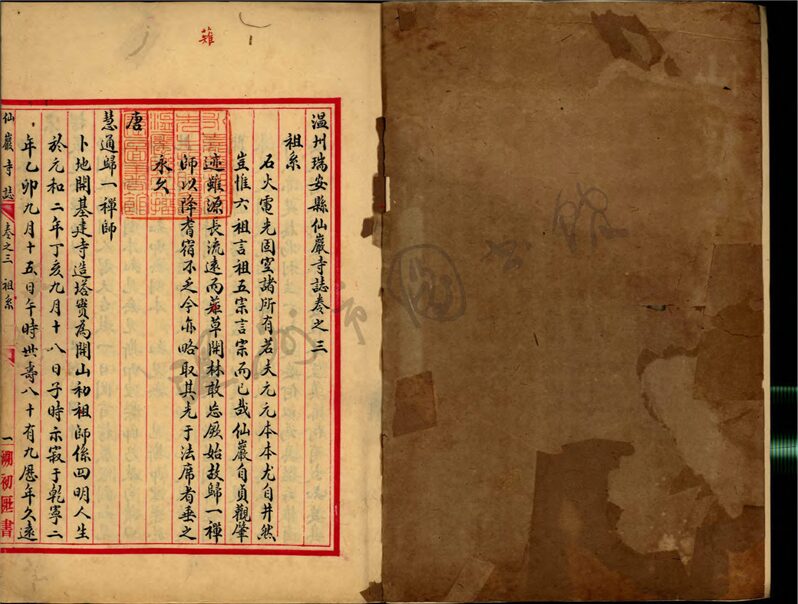 薙
温州瑞安縣仙巖寺誌卷之三
祖系
石火電光固空諸所有若夫元元本本尤自井然
豈惟六祖言祖五宗言宗而已哉仙巖自貞觀肇
迹雖源長流遠而薙草開林敢忘厥始故歸一禪
師以降耆宿不乏今亦略取其先于法席者垂之
永久
唐
慧通歸一禪師
卜地開基建寺造塔實為開山初祖師係四明人生
於元和二年丁亥九月十八日子時示寂于乾寧二
年乙卯九月十五日午時世壽八十有九歷年久遠
仙巖寺誌 卷之三 祖系 一 溯初匨書